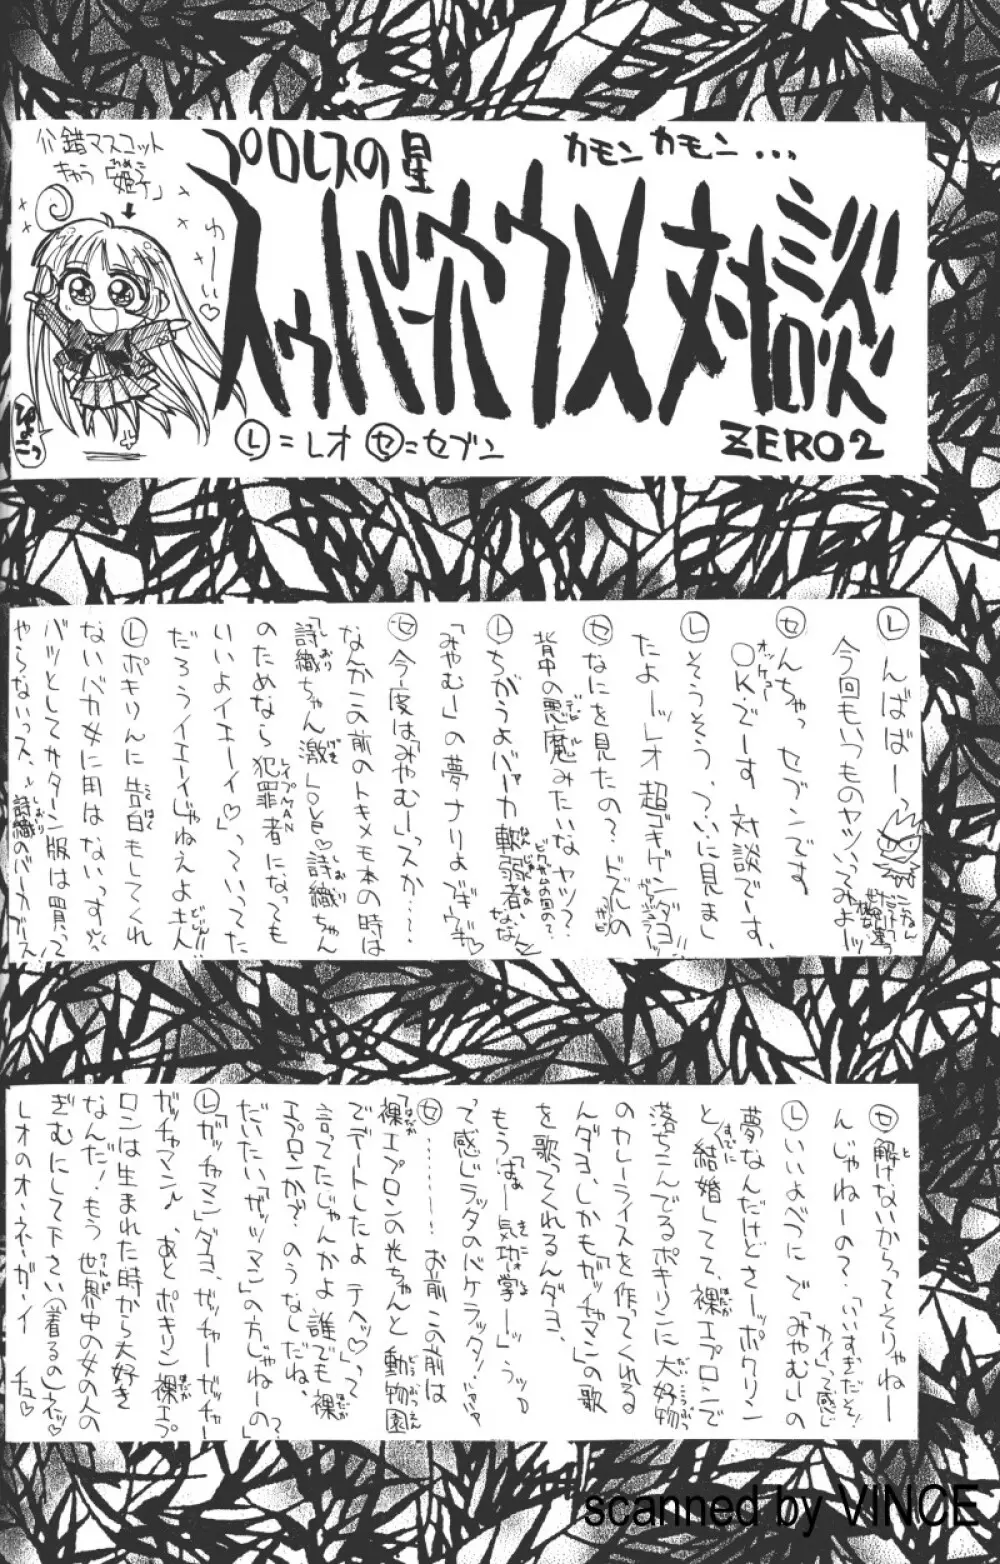 介錯マスコット
きゅう「姫子」
ひめこ
わーい♡
ぴょこっ
プロレスの星
カモンカモン...
スゥパーホウメ対談
ZERO2
Ⓛ=レオ ㋝=セブン
Ⓛんばばー?
今回もいつものヤツいってみよーッ
㋝んちゃっ セブンです
OKでーす 対談でーす、
オッケュー
Ⓛそうそう、ついに見まし
たよーッレオ超ゴキゲンダヨ!!
㋝なにを見たの?ドズルの
背中の悪魔みたいなヤツ?
デビル
ビグザムの回の?
Ⓛちがうよバァーカ軟弱者いな
「みやむー」の夢ナリよブギウギ♡
㋝今度は「みやむー」っスか…?
なんかこの前のトキメモ本の時は
「詩織ちゃん激Love♡詩織ちゃん
しおり
げき
しおり
のためなら犯罪者になっても
レイプMAN
いいよイエーイ♡」っていってた
だろうイエーイじゃねえよ主人
じん!!
Ⓛポキりんに告白もしてくれ
こくはく
ないバカ女に用はないっす
バツとしてサターン版は買って
やらないっス、詩織のバーカブース
しおり
㋝解けないからってそりゃねー
と
んじゃねーの?「いいすぎだそ!
カイ」って感じ
Ⓛいいよべつにで「みやむー」の
夢なんだけどさーッポクリン
と結婚してて、裸エプロンで
すでに
はだか
落ちこんでるポキリンに大好物
だいこうぶつ
のカレーライスを作ってくれる
んダヨ、しかも「ガッチャマン」の歌
を歌ってくれるんダヨ、
もう「はぁー気功掌ーッ」うッッ?
きこうしょう
って感じラッタのバケラッタッ!
㋝………!お前この前は
「裸エプロンの光ちゃんと動物園
はだか
どうぶつえん
でデートしたよテヘッ♡」って
言ってたじゃんかよ誰でも裸
はだか
エプロンか?のうなしだね、
だいたい「ガッツマン」の方じゃねーの?」
Ⓛ「ガッチャマン」ダヨ、ガッチャーガッチャー
ガッチャマン♪、あとポキリン裸エプ
はだか
ロンは生まれた時から大好き
なんだ!もう世界中の女の人の
ワールド
ぎむにして下さい(着るの)ネッ♡
レオのオ・ネ・ガ・イ チュ♡
scanned by VINCE